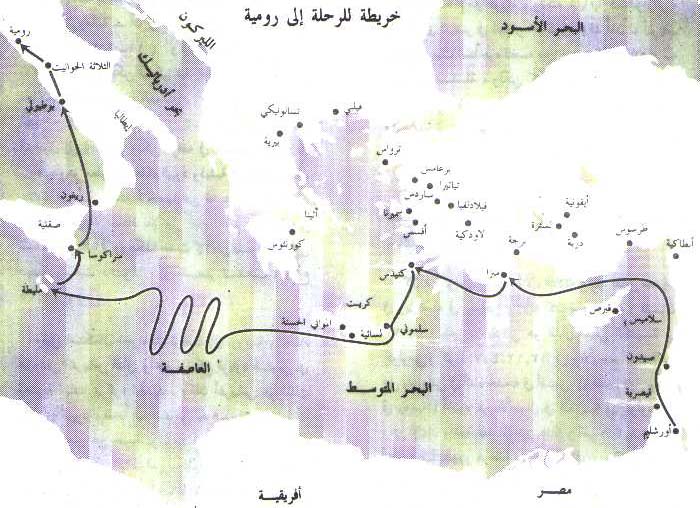 خريطة للرحلة إلى رومية
البحر الأسود
الليركون
رومية
الثلاثة الحوانيت
بحر أدرياتيك
بوطيولي
ايطاليا
فيلبي
تسالونيكي
بيرية
ترواس
برغامس
ثياتيرا
ساردس
فيلادلفيا
سميرنا
أفسس
لاودكية
أيقونية
لسترة
دربة
طرسوس
أنطاكية
برجة
ريغيون
صقلية
سراكوسا
أثينا
كورنثوس
كنيدس
ميرا
مليطة
كريت
المواني الحسنة
لسائية
سلموني
قبرص
سلاميس
صيدون
قيصرية
أورشليم
العاصفة
البحر المتوسط
أفريقية
مصر